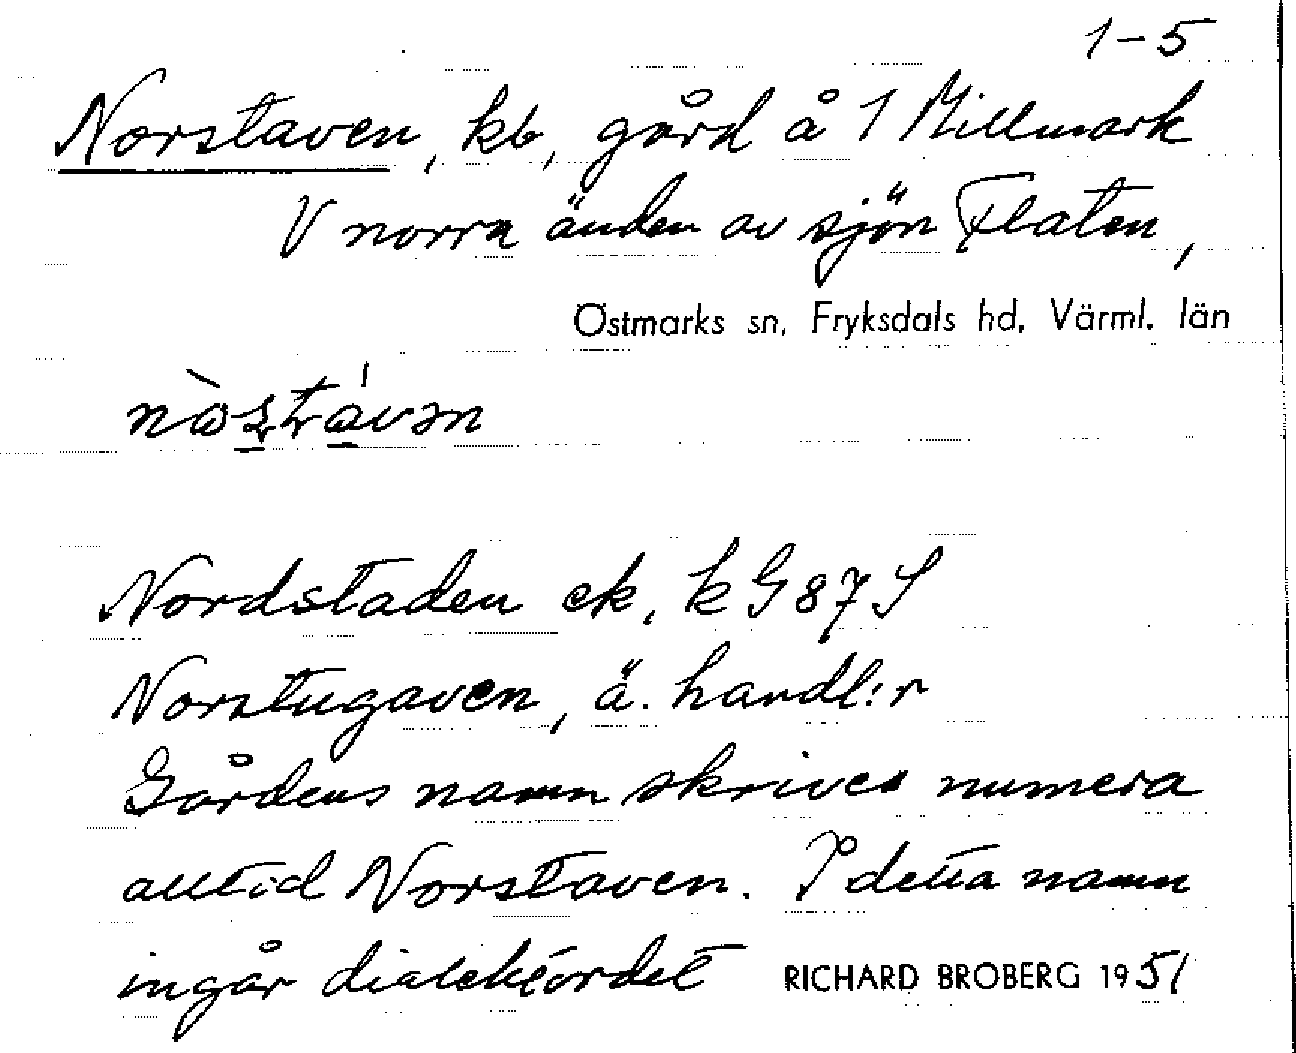 1-5
Norstaven, kb, gård å 1 Millmark
V norra änden av sjön Flaten,
Östmarks sn, Fryksdals hd, Värml. län
Nordstaden ek, k G 87 S
Norstugaven, ä. handl:r
Gårdens namn skrives numera
alltid Norstaven. I detta namn
ingår dialektordet
RICHARD BROBERG 1951